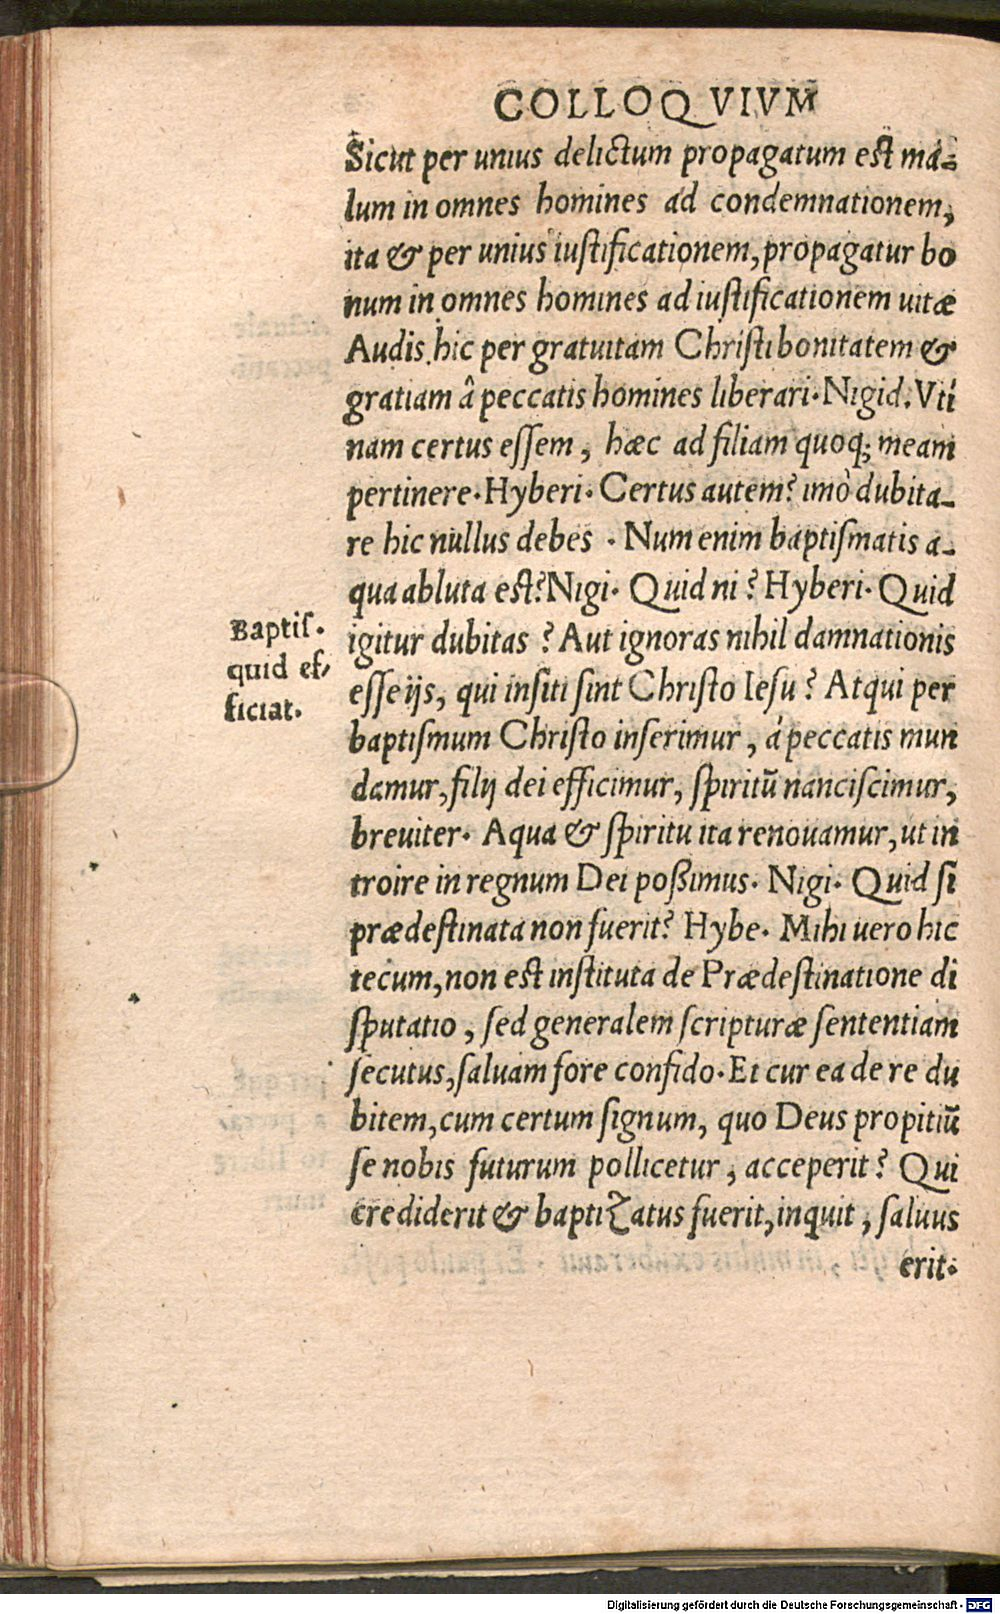 COLLOQVIVM
Sicut per unius delictum propagatum est ma-
lum in omnes homines ad condemnationem,
ita & per unius iustificationem, propagatur bo
num in omnes homines ad iustificationem uitæ
Audis hic per gratuitam Christi bonitatem &
gratiam â peccatis homines liberari. Nigid. Vti
nam certus essem, hæc ad filiam quoq; meam
pertinere. Hyberi. Certus autem? imò dubita-
re hic nullus debes. Num enim baptismatis a-
qua abluta est? Nigi. Quid ni? Hyberi. Quid
Baptis.
quid ef-
ficiat.
igitur dubitas? Aut ignoras nihil damnationis
esse ijs, qui insiti sint Christo Iesu? Atqui per
baptismum Christo inserimur, á peccatis mun
damur, filij dei efficimur, spiritū nanciscimur,
breuiter. Aqua & spiritu ita renouamur, ut in
troire in regnum Dei poßimus. Nigi. Quid si
prædestinata non fuerit? Hybe. Mihi uero hic
tecum, non est instituta de Prædestinatione di
sputatio, sed generalem scripturæ sententiam
secutus, saluam fore confido. Et cur ea de re du
bitem, cum certum signum, quo Deus propitiū
se nobis futurum pollicetur, acceperit? Qui
crediderit & baptizatus fuerit, inquit, saluus
erit.
Digitalisierung gefördert durch die Deutsche Forschungsgemeinschaft - DFG